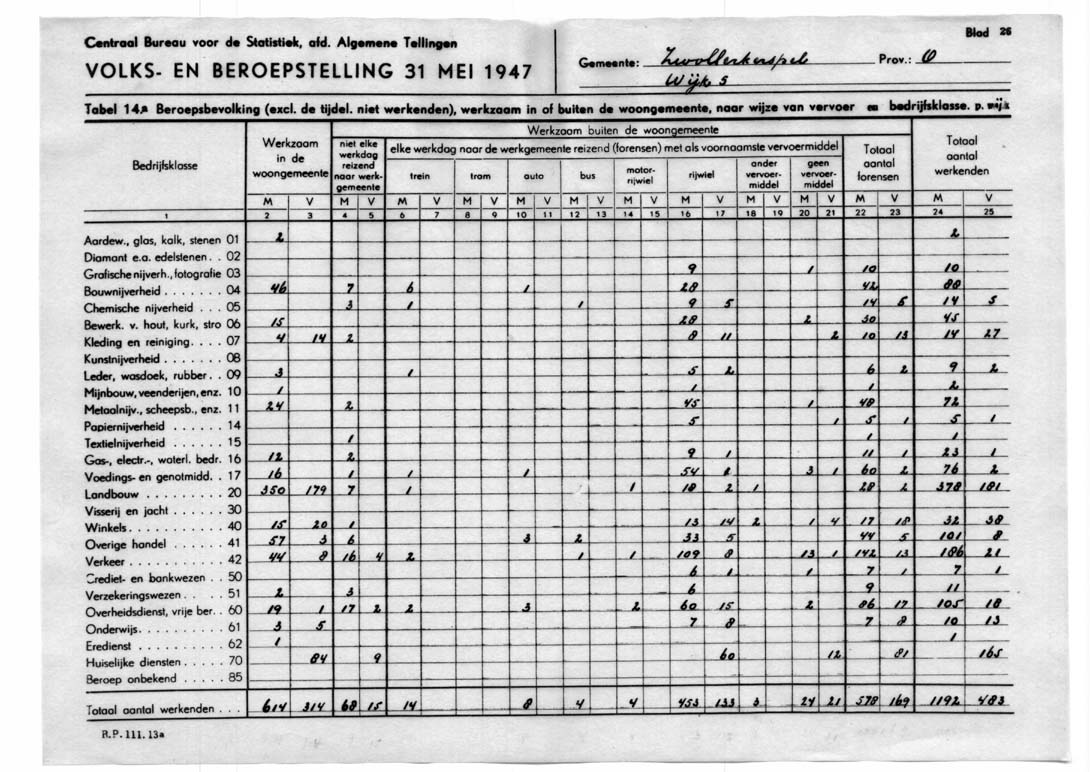 Centraal Bureau voor de Statistiek, afd. Algemene Tellingen
VOLKS- EN BEROEPSTELLING 31 MEI 1947
Gemeente: Zwollerkerspel Prov.: O
Wijk 5
Blad 26
Tabel 14.a Beroepsbevolking (excl. de tijdel. niet werkenden), werkzaam in of buiten de woongemeente, naar wijze van vervoer en bedrijfsklasse. p. wijk
Bedrijfsklasse
Werkzaam in de woongemeente
Werkzaam buiten de woongemeente
niet elke werkdag reizend naar werkgemeente
elke werkdag naar de werkgemeente reizend (forensen) met als voornaamste vervoermiddel
trein tram auto bus motor-rijwiel rijwiel ander vervoer-middel geen vervoer-middel
Totaal aantal forensen
Totaal aantal werkenden
M V M V M V M V M V M V M V M V M V M V M V M V
1 2 3 4 5 6 7 8 9 10 11 12 13 14 15 16 17 18 19 20 21 22 23 24 25
Aardew., glas, kalk, stenen 01 2 2
Diamant e.a. edelstenen . . 02
Grafische nijverh., fotografie 03 9 1 10 10
Bouwnijverheid . . . . . . . 04 46 7 6 1 28 42 88
Chemische nijverheid . . . 05 3 1 1 9 5 14 5 14 5
Bewerk. v. hout, kurk, stro 06 15 28 2 30 45
Kleding en reiniging. . . . 07 4 14 2 8 11 2 10 13 14 27
Kunstnijverheid . . . . . . . 08
Leder, wasdoek, rubber. . 09 3 1 5 2 6 2 9 2
Mijnbouw, veenderijen, enz. 10 1 1 1 2
Metaalnijv., scheepsb., enz. 11 24 2 45 1 48 72
Papiernijverheid . . . . . . 14 5 1 5 1 5 1
Textielnijverheid . . . . . 15 1 1 1
Gas-, electr.-, waterl. bedr. 16 12 2 9 1 11 1 23 1
Voedings- en genotmidd. . 17 16 1 1 1 54 2 3 1 60 2 76 2
Landbouw . . . . . . . . . 20 350 179 7 1 1 18 2 1 28 2 378 181
Visserij en jacht . . . . . 30
Winkels. . . . . . . . . . . 40 15 20 1 13 14 2 1 4 17 18 32 38
Overige handel . . . . . . 41 57 3 6 3 2 33 5 44 5 101 8
Verkeer . . . . . . . . . . 42 44 8 16 4 2 1 1 109 8 13 1 142 13 186 21
Crediet- en bankwezen . . 50 6 1 1 7 1 7 1
Verzekeringswezen . . . . 51 2 3 6 9 11
Overheidsdienst, vrije ber. . 60 19 1 17 2 2 3 2 60 15 2 86 17 105 18
Onderwijs. . . . . . . . . . 61 3 5 7 8 7 8 10 13
Eredienst . . . . . . . . . 62 1 1
Huiselijke diensten . . . . . 70 84 9 60 12 81 165
Beroep onbekend . . . . . 85
Totaal aantal werkenden . . . 614 314 68 15 14 8 4 4 453 133 3 24 21 578 169 1192 483
R.P. 111. 13a